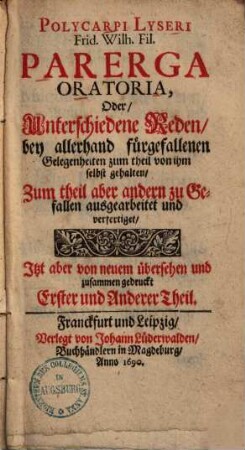 POLYCARPI LYSERI
Frid. Wilh. Fil.
PARERGA
ORATORIA,
Oder/
Unterschiedene Reden/
bey allerhand fürgefallenen
Gelegenheiten zum theil von ihm
selbst gehalten/
Zum theil aber andern zu Ge-
fallen ausgearbeitet und
verfertiget/
Itzt aber von neuem übersehen und
zusammen gedruckt
Erster und Anderer Theil.
Franckfurt und Leipzig/
Verlegt von Johann Lüderwalden/
Buchhändlern in Magdeburg/
Anno 1690.
IN
AUGSBURG